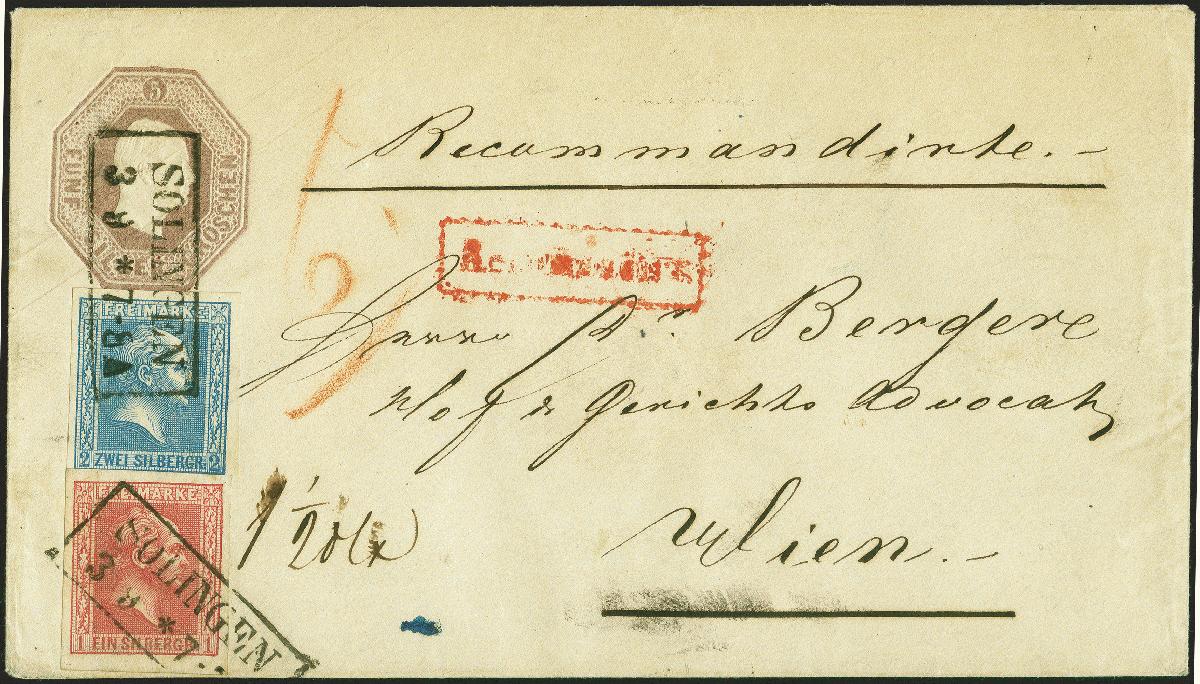 5
FÜNF
Recommandirte.-
SOLINGEN
3 9 * 7-8
Herrn Dr. Bergere
Hof & Gerichts Advocat
FREIMARKE
2 ZWEI SILBERGR. 2
1 1/2 Lth
Wien.-
FREIMARKE
SOLINGEN
3 9 * 7
1 EIN SILBERGR. 1